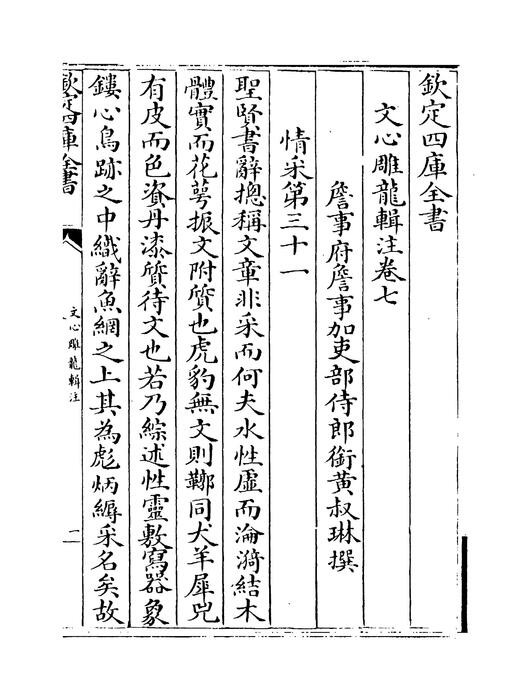 欽定四庫全書
文心雕龍輯注卷七
詹事府詹事加吏部侍郎銜黃叔琳撰
情采第三十一
聖賢書辭摠稱文章非采而何夫水性虛而淪漪結木
體實而花萼振文附質也虎豹無文則鞹同犬羊犀兕
有皮而色資丹漆質待文也若乃綜述性靈敷寫器象
鏤心鳥跡之中織辭魚網之上其為彪炳縟采名矣故
欽定四庫全書
文心雕龍輯注
一